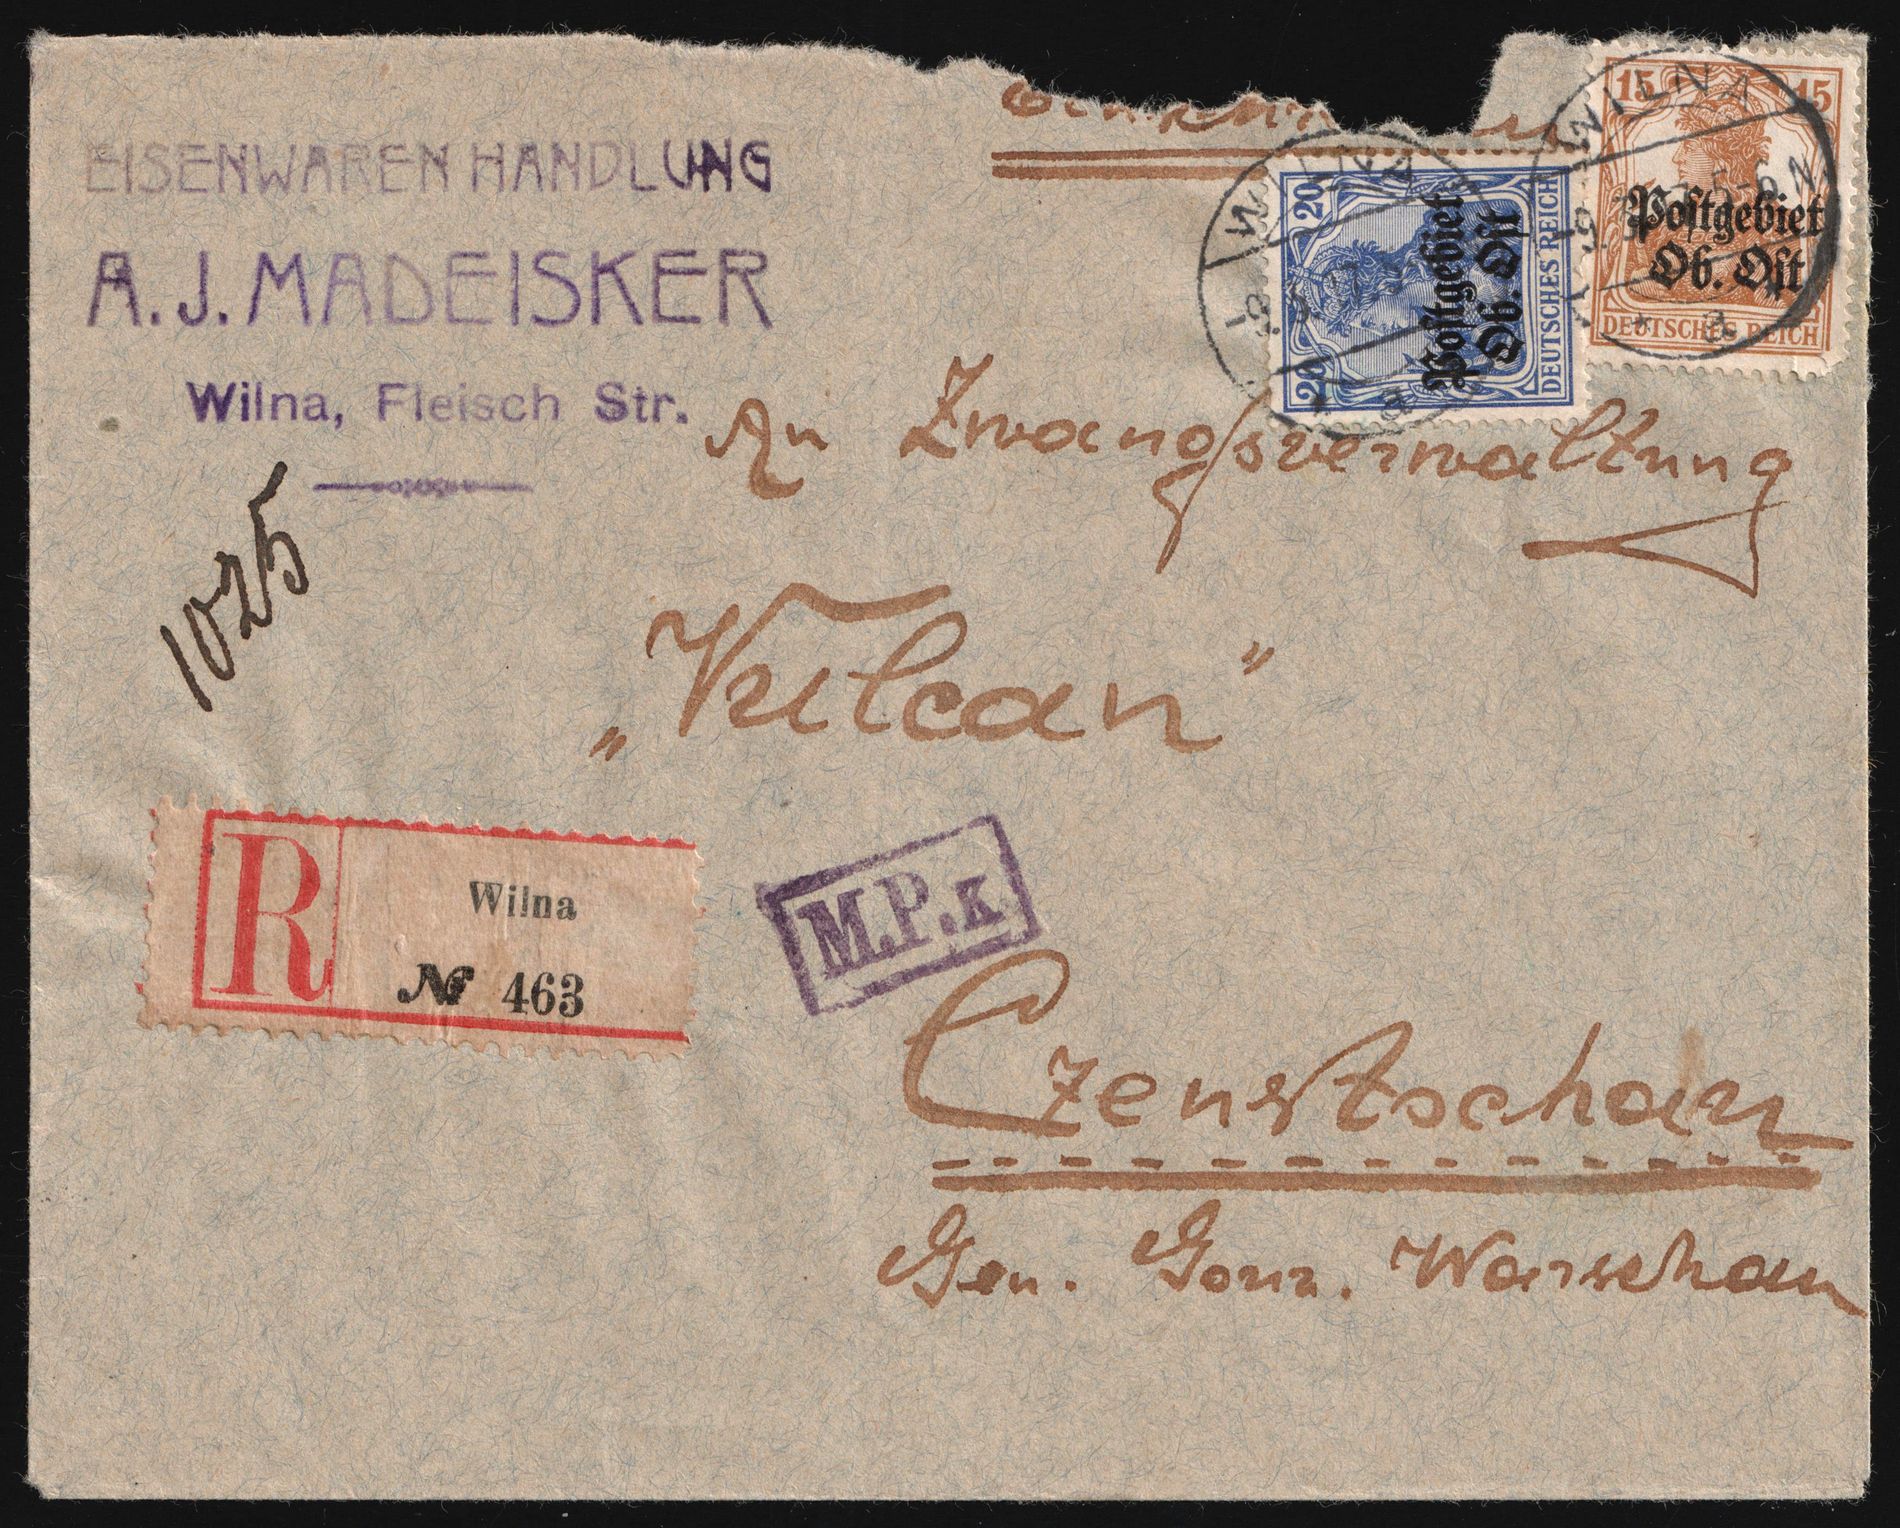 EISENWAREN HANDLUNG
A. J. MADEISKER
Wilna, Fleisch Str.
1025
WILNA
20 20
Postgebiet
Ob. Ost
DEUTSCHES REICH
WILNA
15 15
Postgebiet
Ob. Ost
DEUTSCHES REICH
An Zwangsverwaltung
„Vulcan"
R
Wilna
№ 463
M.P.K
Czenstochau
Gen. Gouv. Warschau